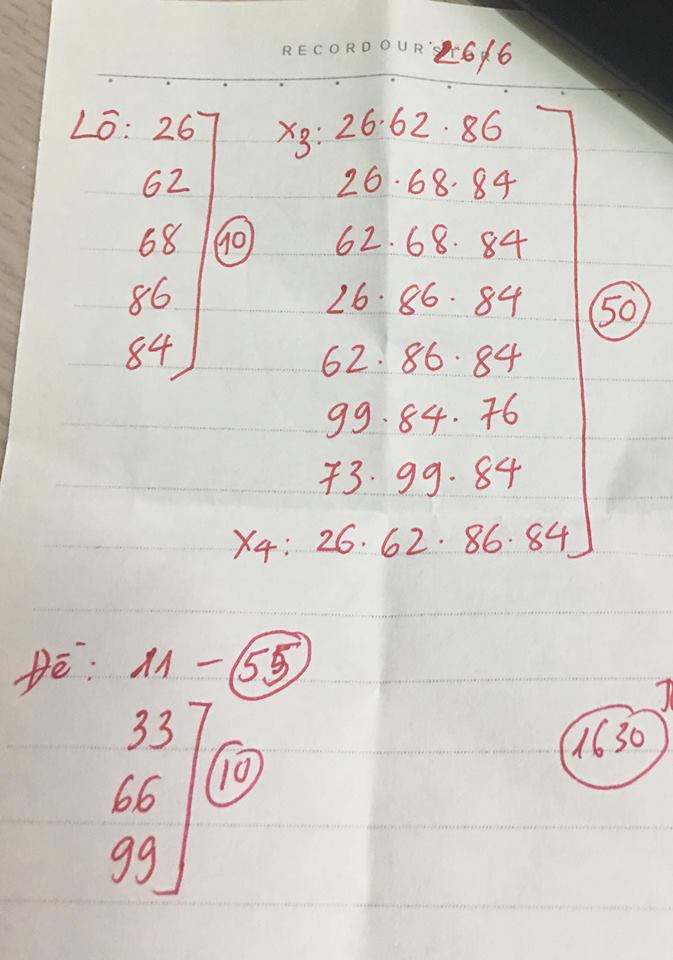 RECORD OUR 26/6
Lô: 26
62
68
86
84
10
x3: 26.62.86
26.68.84
62.68.84
26.86.84
62.86.84
99.84.76
73.99.84
x4: 26.62.86.84
50
Đề: 11 - 55
33
66
99
10
1630